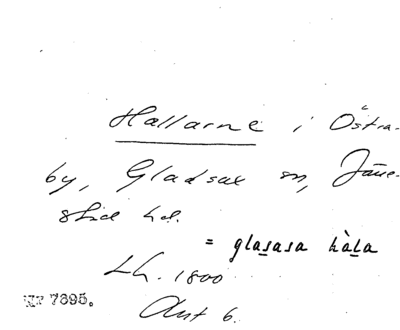 Hallarne i Östra-
by, Gladsax sn, Järre-
stad hd.
= glasasa hàla
Lh. 1800
Ant 6.
NT 7395.